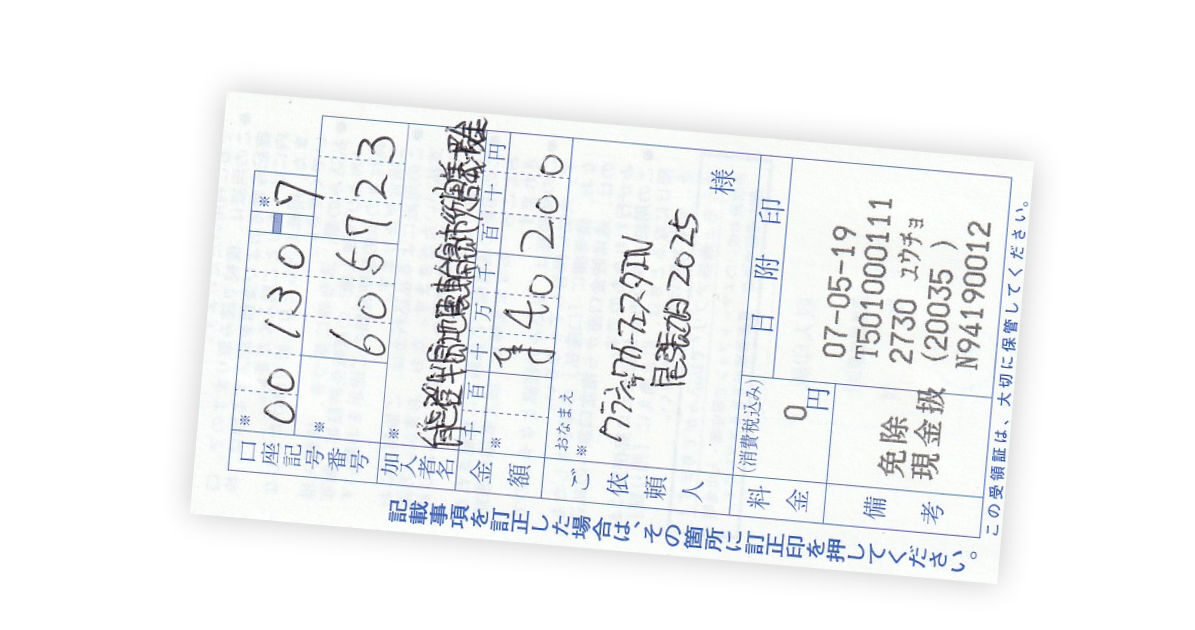 口座記号番号
※
00130
※
7
※
6057723
加入者名
※
金額
千百十万千百十円
※
¥40200
ご依頼人
おなまえ
※
クラシックカーフェスタIN
尾張旭2025
様
料金
(消費税込み)
0円
日附印
07-05-19
T501000111
2730 ユウチヨ
(20035 )
N94190012
備考
免除
現金扱
この受領証は、大切に保管してください。
記載事項を訂正した場合は、その箇所に訂正印を押してください。